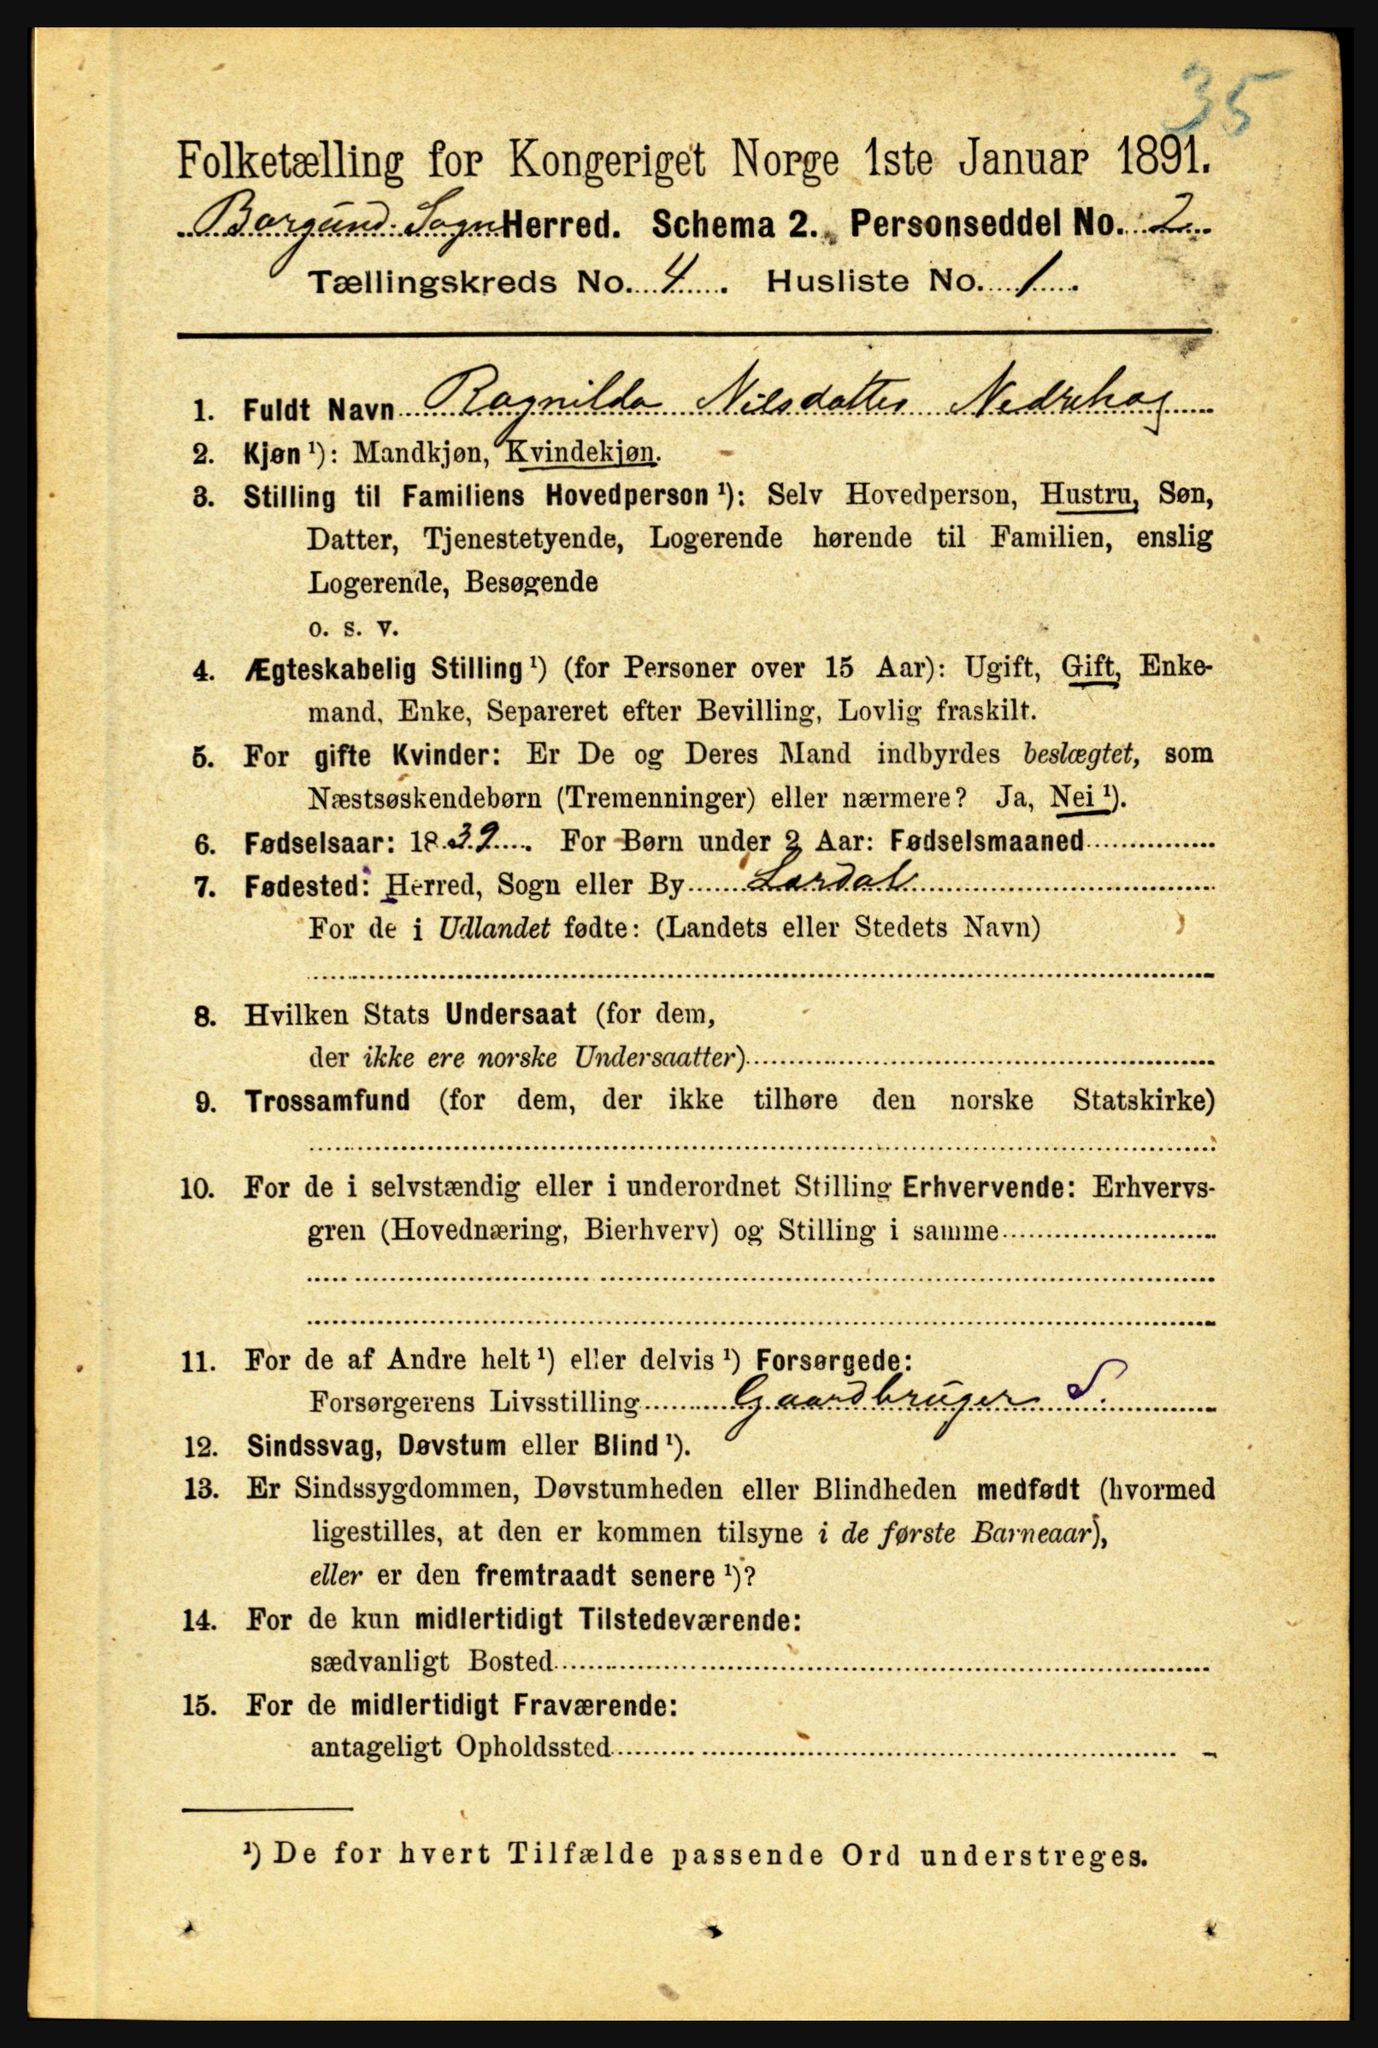 35
Folketælling for Kongeriget Norge 1ste Januar 1891.
Borgund Sogn Herred. Schema 2. Personseddel No. 2
Tællingskreds No. 4. Husliste No. 1.
1. Fuldt Navn Ragnilda Nilsdatter Nedrehag
2. Kjøn ¹): Mandkjøn, Kvindekjøn.
3. Stilling til Familiens Hovedperson ¹): Selv Hovedperson, Hustru, Søn,
Datter, Tjenestetyende, Logerende hørende til Familien, enslig
Logerende, Besøgende
o. s. v.
4. Ægteskabelig Stilling ¹) (for Personer over 15 Aar): Ugift, Gift, Enke-
mand, Enke, Separeret efter Bevilling, Lovlig fraskilt.
5. For gifte Kvinder: Er De og Deres Mand indbyrdes beslægtet, som
Næstsøskendebørn (Tremenninger) eller nærmere? Ja, Nei ¹).
6. Fødselsaar: 1839. For Børn under 2 Aar: Fødselsmaaned
7. Fødested: Herred, Sogn eller By Lærdal
For de i Udlandet fødte: (Landets eller Stedets Navn)
8. Hvilken Stats Undersaat (for dem,
der ikke ere norske Undersaatter)
9. Trossamfund (for dem, der ikke tilhøre den norske Statskirke)
10. For de i selvstændig eller i underordnet Stilling Erhvervende: Erhvervs-
gren (Hovednæring, Bierhverv) og Stilling i samme
11. For de af Andre helt ¹) eller delvis ¹) Forsørgede:
Forsørgerens Livsstilling Gaardbruger S.
12. Sindssvag, Døvstum eller Blind ¹).
13. Er Sindssygdommen, Døvstumheden eller Blindheden medfødt (hvormed
ligestilles, at den er kommen tilsyne i de første Barneaar),
eller er den fremtraadt senere ¹)?
14. For de kun midlertidigt Tilstedeværende:
sædvanligt Bosted
15. For de midlertidigt Fraværende:
antageligt Opholdssted
¹) De for hvert Tilfælde passende Ord understreges.